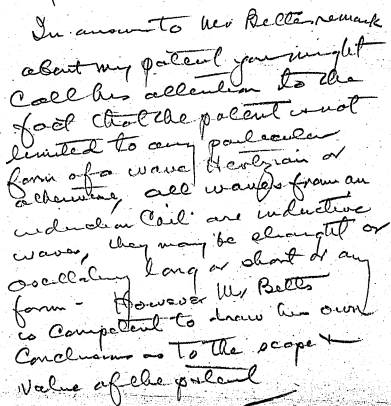 In answer to Mr Betts remark
about my patent you might
Call his attention to the
fact that the patent is not
limited to any particular
form of a wave Hertzian or
otherwise, all waves from an
induction Coil are inductive
waves, they may be straight or
oscillatory long or short or any
form - However Mr Betts
is Competent to draw his own
Conclusions as to the scope &
value of the patent